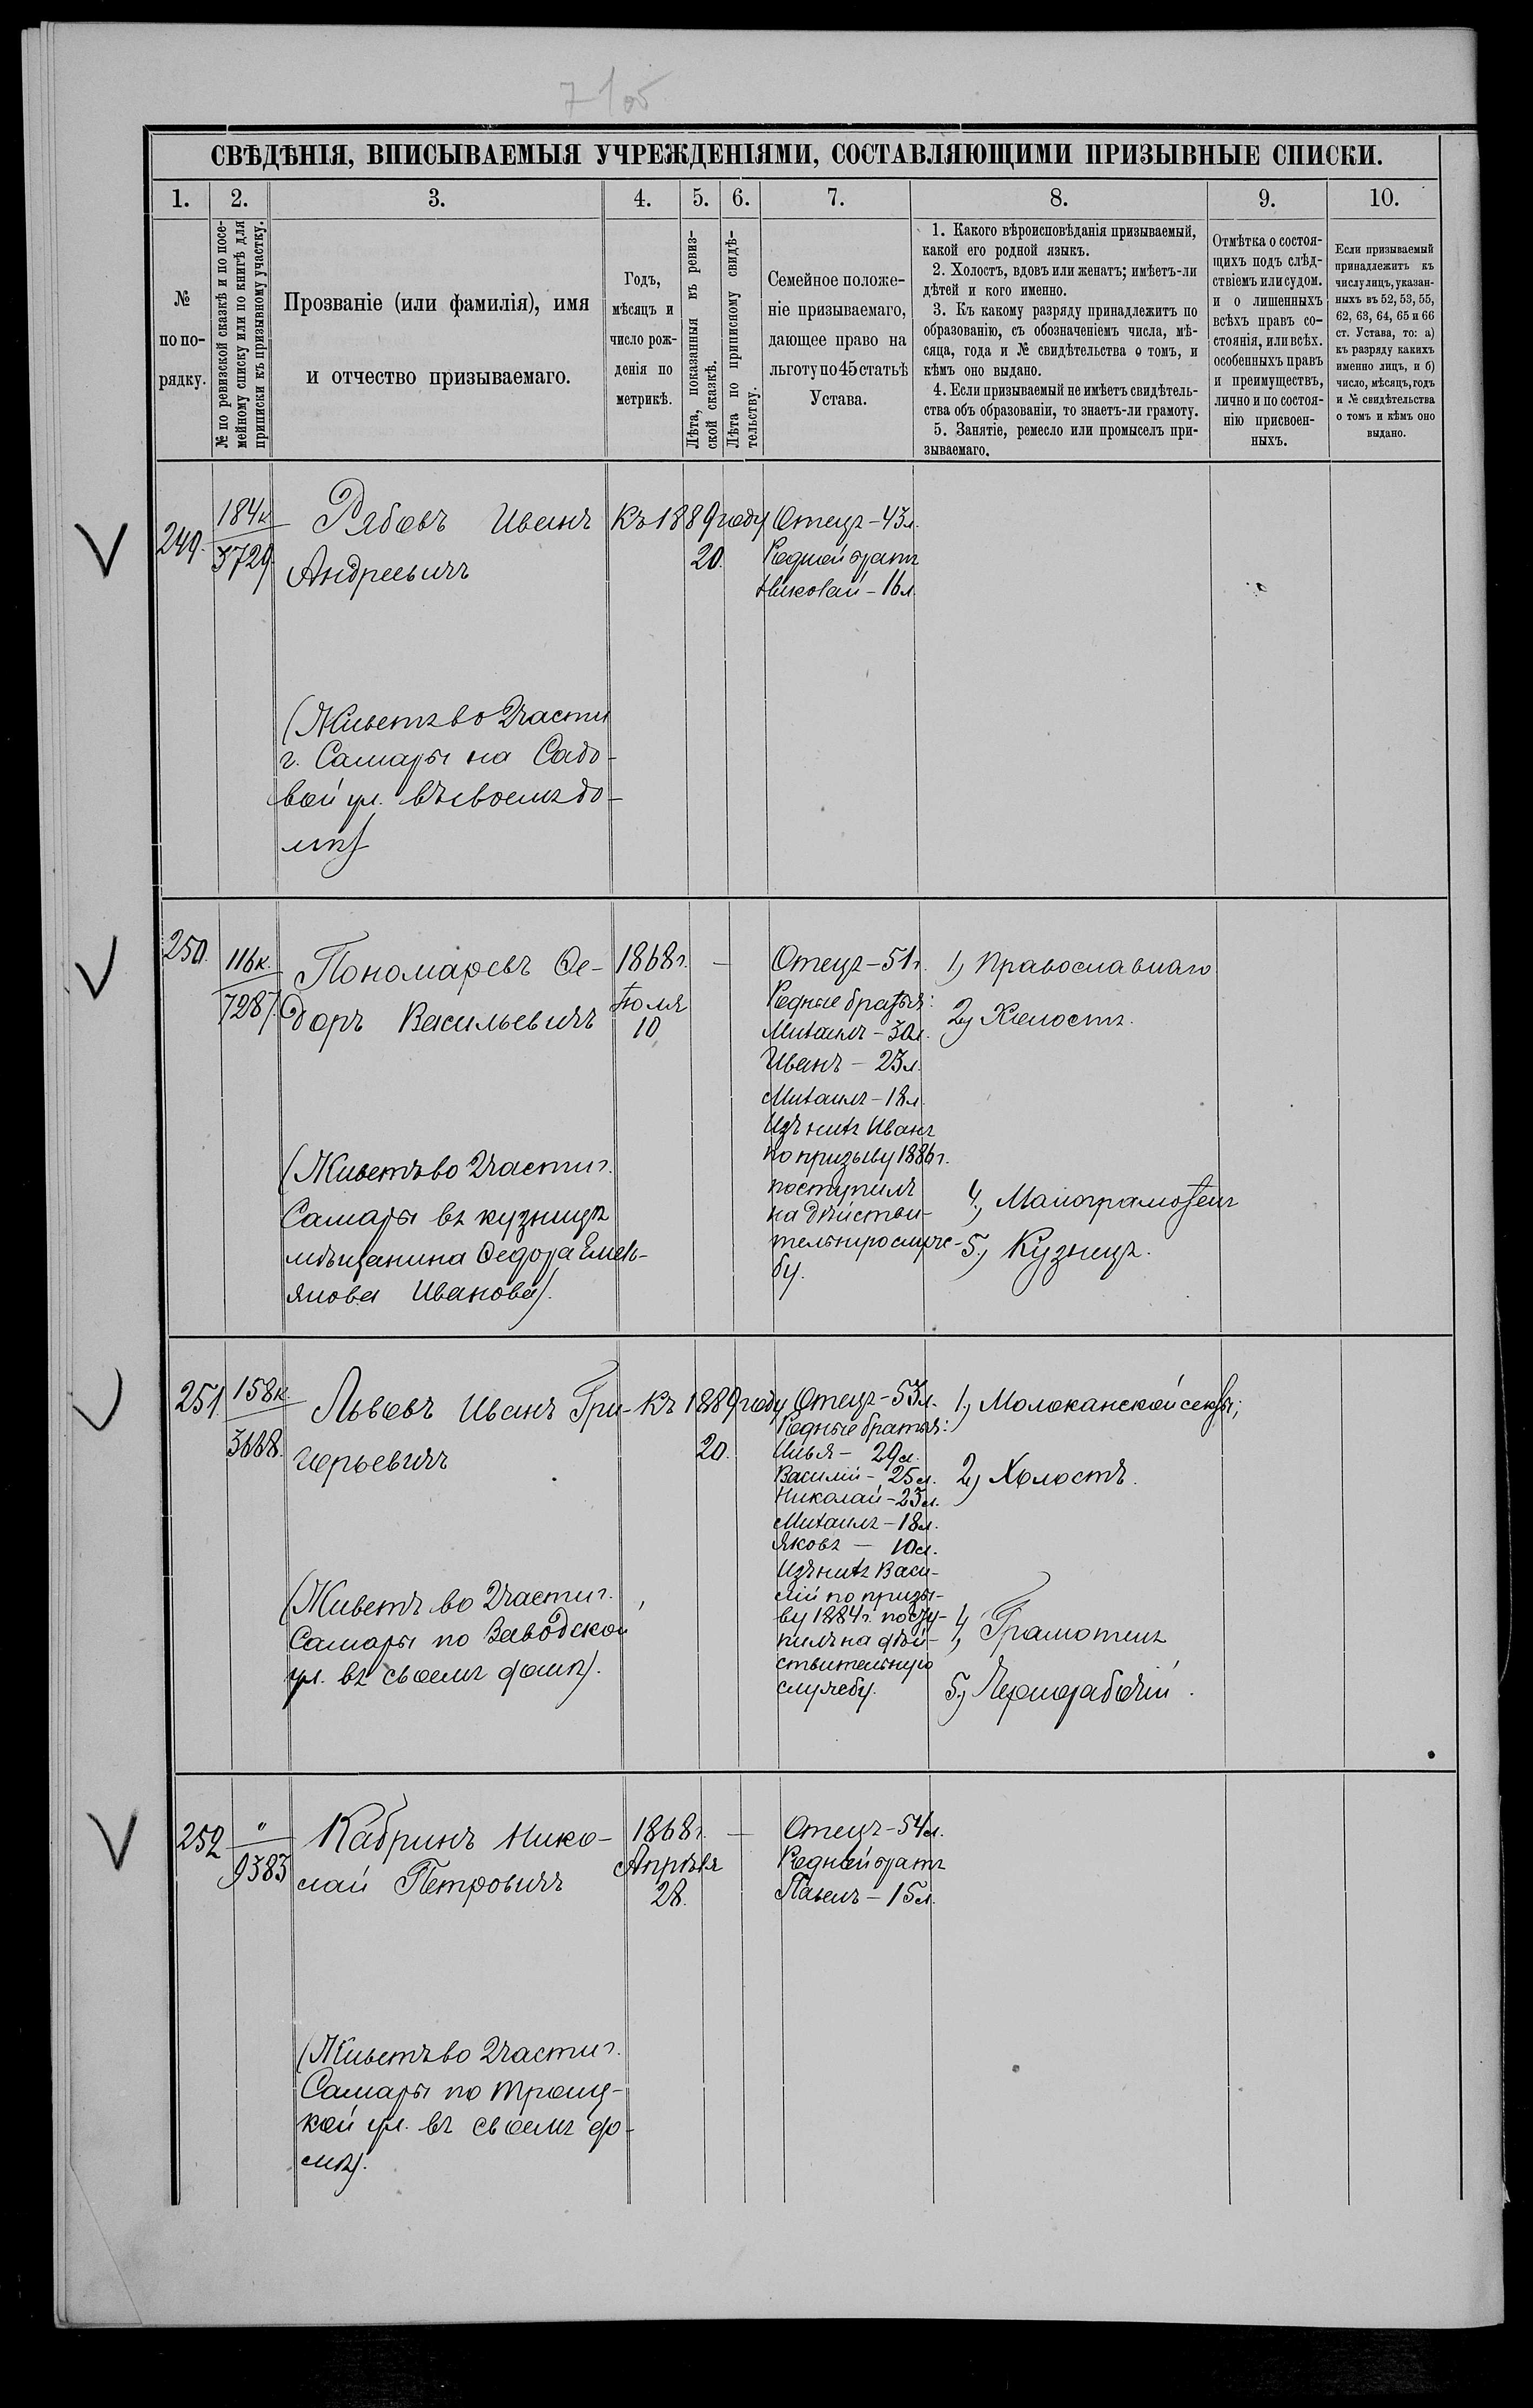 7 105
СВѢДѢНІЯ, ВПИСЫВАЕМЫЯ УЧРЕЖДЕНІЯМИ, СОСТАВЛЯЮЩИМИ ПРИЗЫВНЫЕ СПИСКИ.
1. 2. 3. 4. 5. 6. 7. 8. 9. 10.
№
по по-
рядку.
№ по ревизской сказкѣ и по посе-
мейному списку или по книгѣ для
приписки къ призывному участку.
Прозваніе (или фамилія), имя
и отчество призываемаго.
Годъ,
мѣсяцъ и
число рож-
денія по
метрикѣ.
Лѣта, показанныя въ ревиз-
ской сказкѣ.
Лѣта по приписному свидѣ-
тельству.
Семейное положе-
ніе призываемаго,
дающее право на
льготу по 45 статьѣ
Устава.
1. Какого вѣроисповѣданія призываемый,
какой его родной языкъ.
2. Холостъ, вдовъ или женатъ; имѣетъ-ли
дѣтей и кого именно.
3. Къ какому разряду принадлежитъ по
образованію, съ обозначеніемъ числа, мѣ-
сяца, года и № свидѣтельства о томъ, и
кѣмъ оно выдано.
4. Если призываемый не имѣетъ свидѣтель-
ства объ образованіи, то знаетъ-ли грамоту.
5. Занятіе, ремесло или промыселъ при-
зываемаго.
Отмѣтка о состоя-
щихъ подъ слѣд-
ствіемъ или судом.
и о лишенныхъ
всѣхъ правъ со-
стоянія, или всѣх.
особенныхъ правъ
и преимуществъ,
лично и по состоя-
нію присвоен-
ныхъ.
Если призываемый
принадлежитъ къ
числу лицъ, указан-
ныхъ въ 52, 53, 55,
62, 63, 64, 65 и 66
ст. Устава, то: а)
къ разряду какихъ
именно лицъ, и б)
число, мѣсяцъ, годъ
и № свидѣтельства
о томъ и кѣмъ оно
выдано.
249.
184к
3729
Рябовъ Иванъ
Андреевичъ
(Живетъ во 2 части
г. Самары на Садо-
вой ул. въ своемъ до-
мѣ)
Къ 1889 году
20.
Отецъ – 43 л.
Родной братъ
Николай – 16 л.
250.
116к.
7287.
Пономаревъ Ѳе-
доръ Васильевичъ
(Живетъ во 2 части г.
Самары въ кузницѣ
мѣщанина Ѳедора Емель-
янова Иванова).
1868 г.
Іюля
10
—
Отецъ – 51 г.
Родные братья:
Михаилъ – 30 л.
Иванъ – 23 л.
Михаилъ – 18 л.
Изъ нихъ Иванъ
по призыву 1886 г.
поступилъ
на дѣйстви-
тельную служ-
бу.
1) Православнаго
2) Холостъ.
4) Малограмотенъ
5) Кузнецъ.
251.
158к.
3668.
Львовъ Иванъ Гри-
горьевичъ
(Живетъ во 2 части г.
Самары по Заводской
ул. въ своемъ домѣ).
Къ 1889 году
20.
Отецъ – 53 л.
Родные братья:
Илья – 29 л.
Василій – 25 л.
Николай – 23 л.
Михаилъ – 18 л.
Яковъ – 10 л.
Изъ нихъ Васи-
лій по призы-
ву 1884 г. посту-
пилъ на дѣй-
ствительную
службу.
1) Молоканской секты;
2) Холостъ.
4) Грамотенъ
5) Чернорабочій.
252
"
9383
Кабринъ Нико-
лай Петровичъ
(Живетъ во 2 части г.
Самары по Троиц-
кой ул. въ своемъ до-
мѣ).
1868 г.
Апрѣля
28.
—
Отецъ – 54 л.
Родной братъ
Павелъ – 15 л.